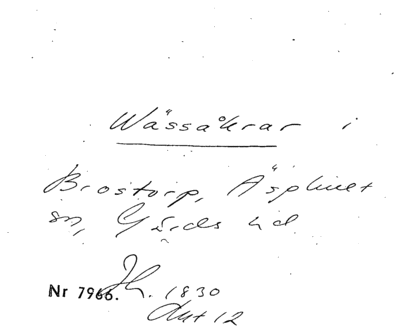 Wässåkrar i
Brostorp, Äsphult
sn, Gärds hd
Nr 7966. 1830
Akt 12